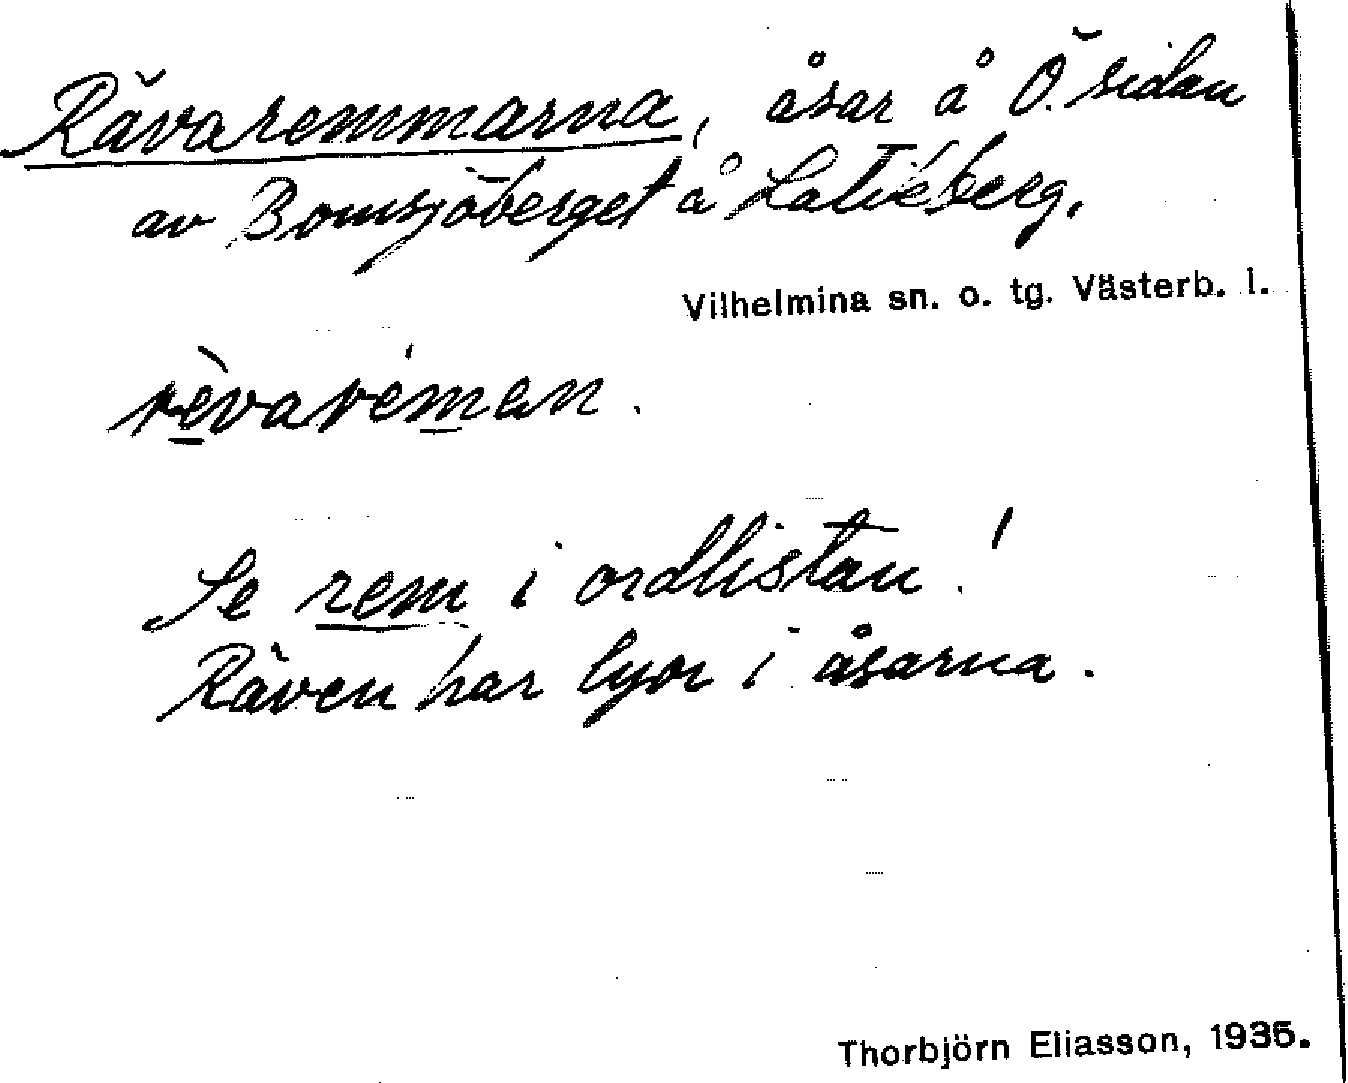 Rävaremmarna, åsar å Ö. sidan
av Bomsjöberget å Latikberg.
Vilhelmina sn. o. tg. Västerb. l.
rèvaréman.
Se rem i ordlistan!
Räven har lyor i åsarna.
Thorbjörn Eliasson, 1935.